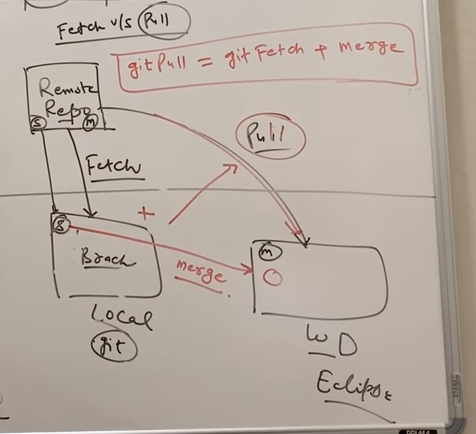 Fetch v/s Pull
git Pull = git Fetch + merge
Remote
Repo
S m
Pull
Fetch
+
S
m
Brach
merge
Local
git
W D
Eclipse